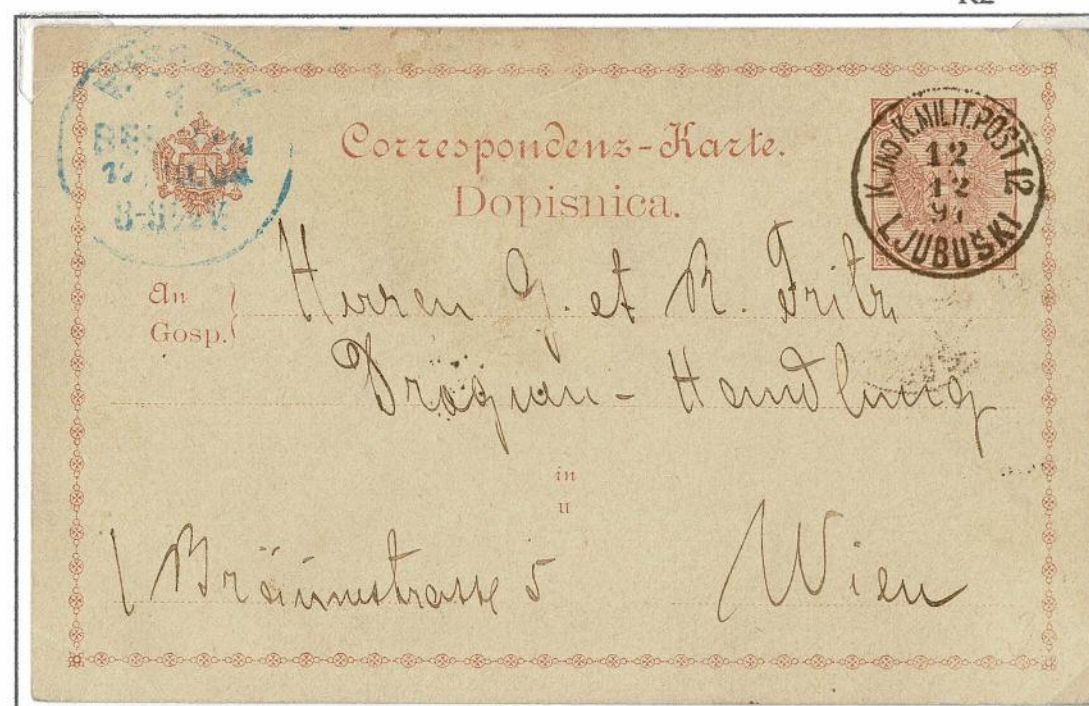 Correspondenz-Karte.
Dopisnica.
K. UND K. MILIT. POST 12
12
12
LJUBUŠKI
An
Gosp.
Herren G. et R. Fritz
Droguen-Handlung
in
u
I Bräunerstrasse 5 Wien